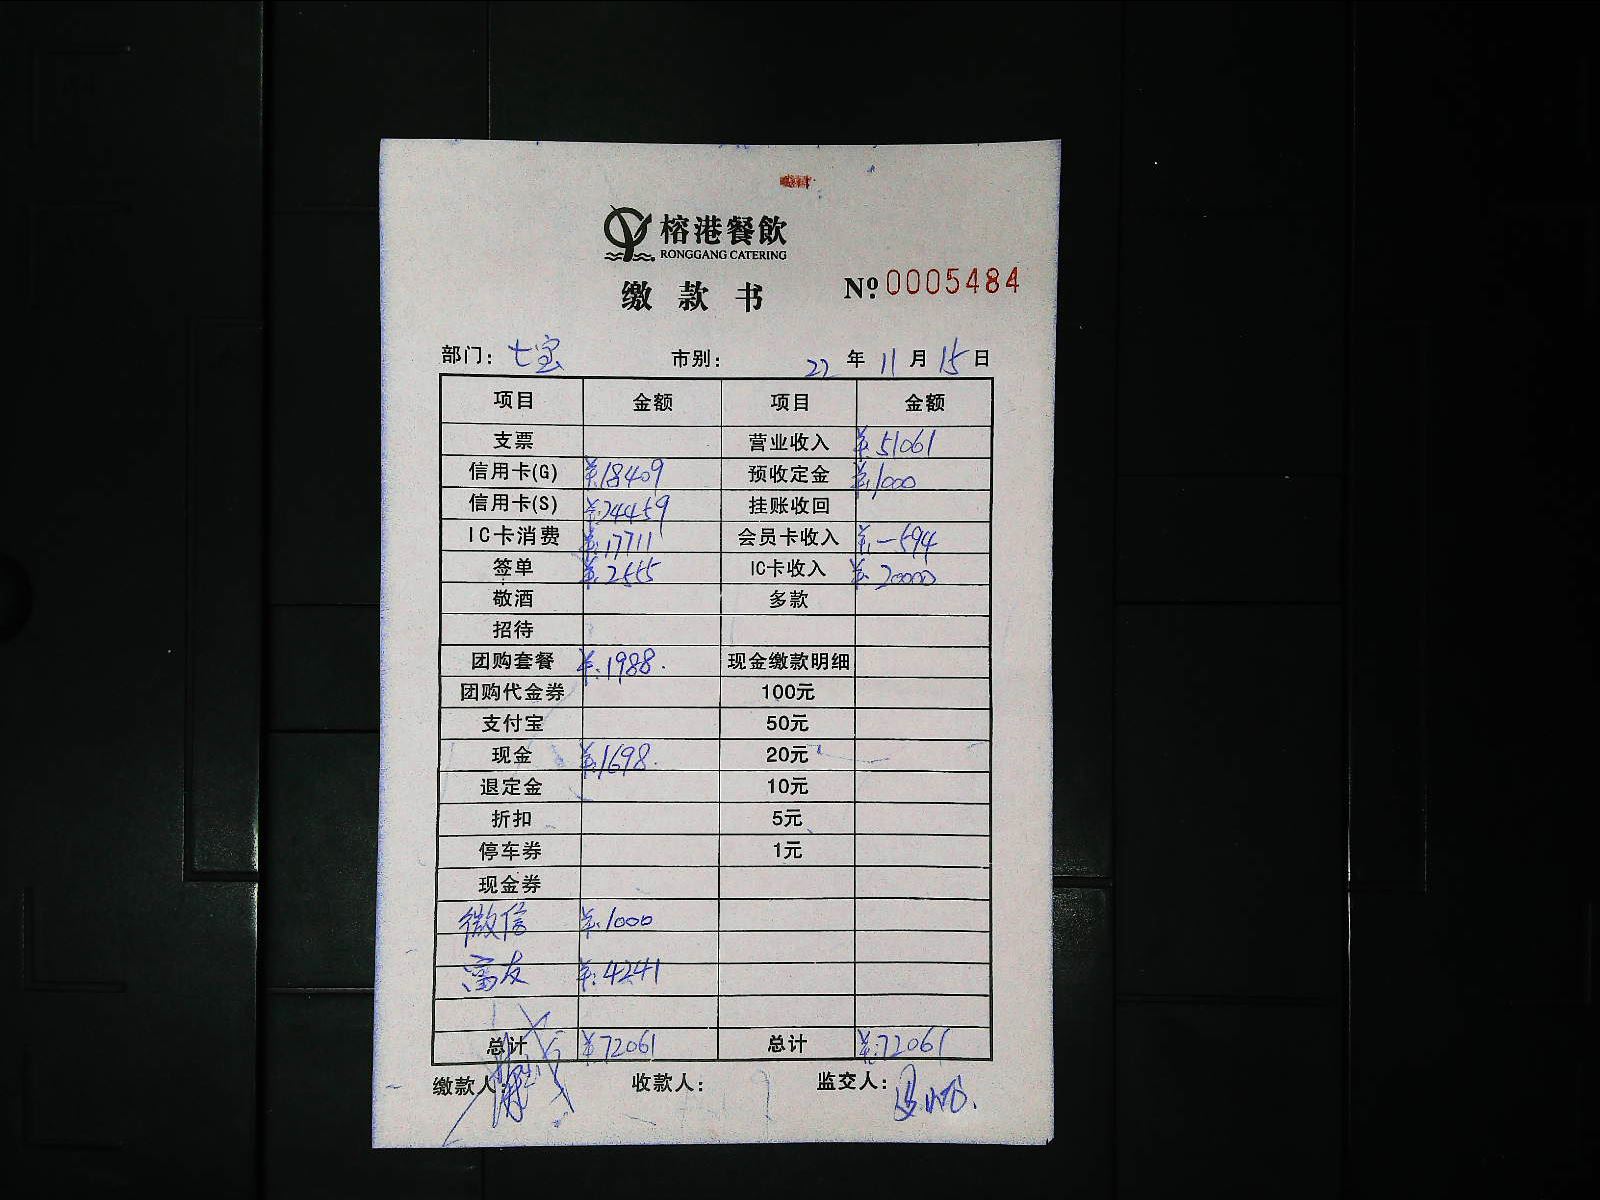 榕港餐飲
RONGGANG CATERING
缴款书 No.0005484
部门：七宝 市别： 22年11月15日
项目 金额 项目 金额
支票 营业收入 ¥:51061
信用卡(G) ¥:18409 预收定金 ¥:1000
信用卡(S) ¥:24459 挂账收回
IC卡消费 ¥:17711 会员卡收入 ¥:-594
签单 ¥:2555 IC卡收入 ¥:20000
敬酒 多款
招待
团购套餐 ¥:1988. 现金缴款明细
团购代金券 100元
支付宝 50元
现金 ¥:1698. 20元
退定金 10元
折扣 5元
停车券 1元
现金券
微信 ¥:1000
富友 ¥:4241
总计 ¥72061 总计 ¥:72061
缴款人： 收款人： 监交人：